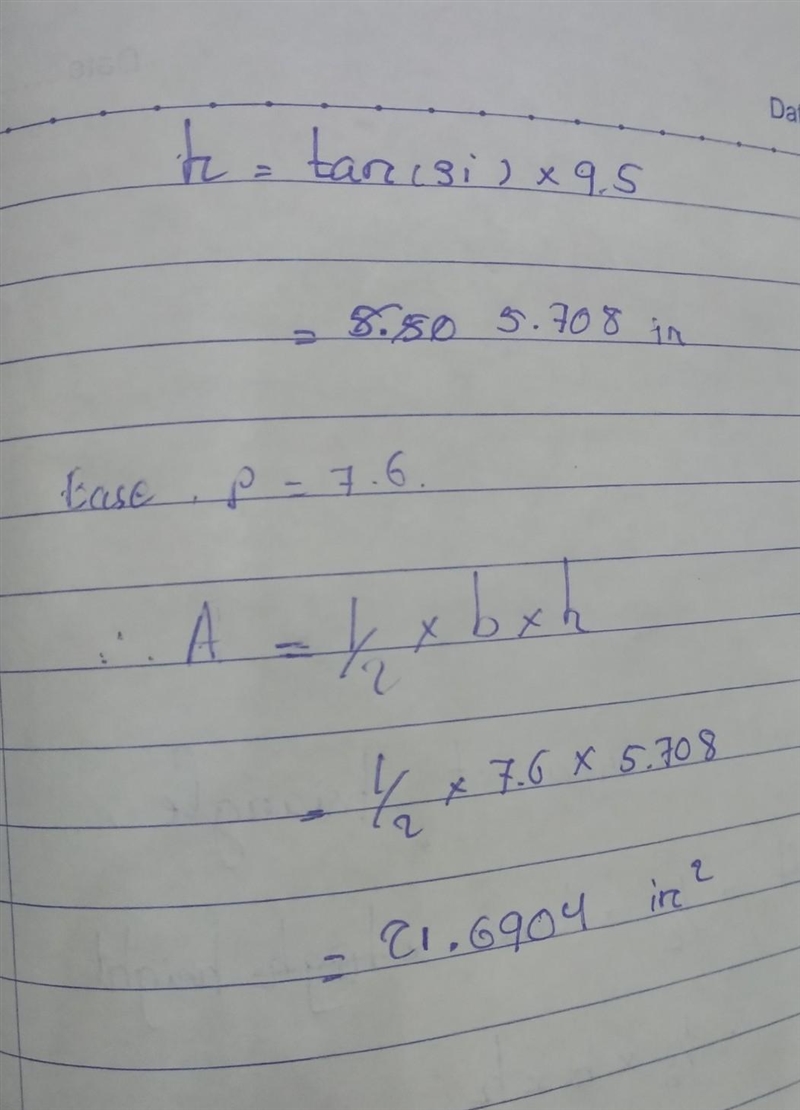 Dat
h = tan(31) × 9.5
= 5.708 in
Base, P = 7.6.
∴ A = 1/2 × b × h
= 1/2 × 7.6 × 5.708
= 21.6904 in²